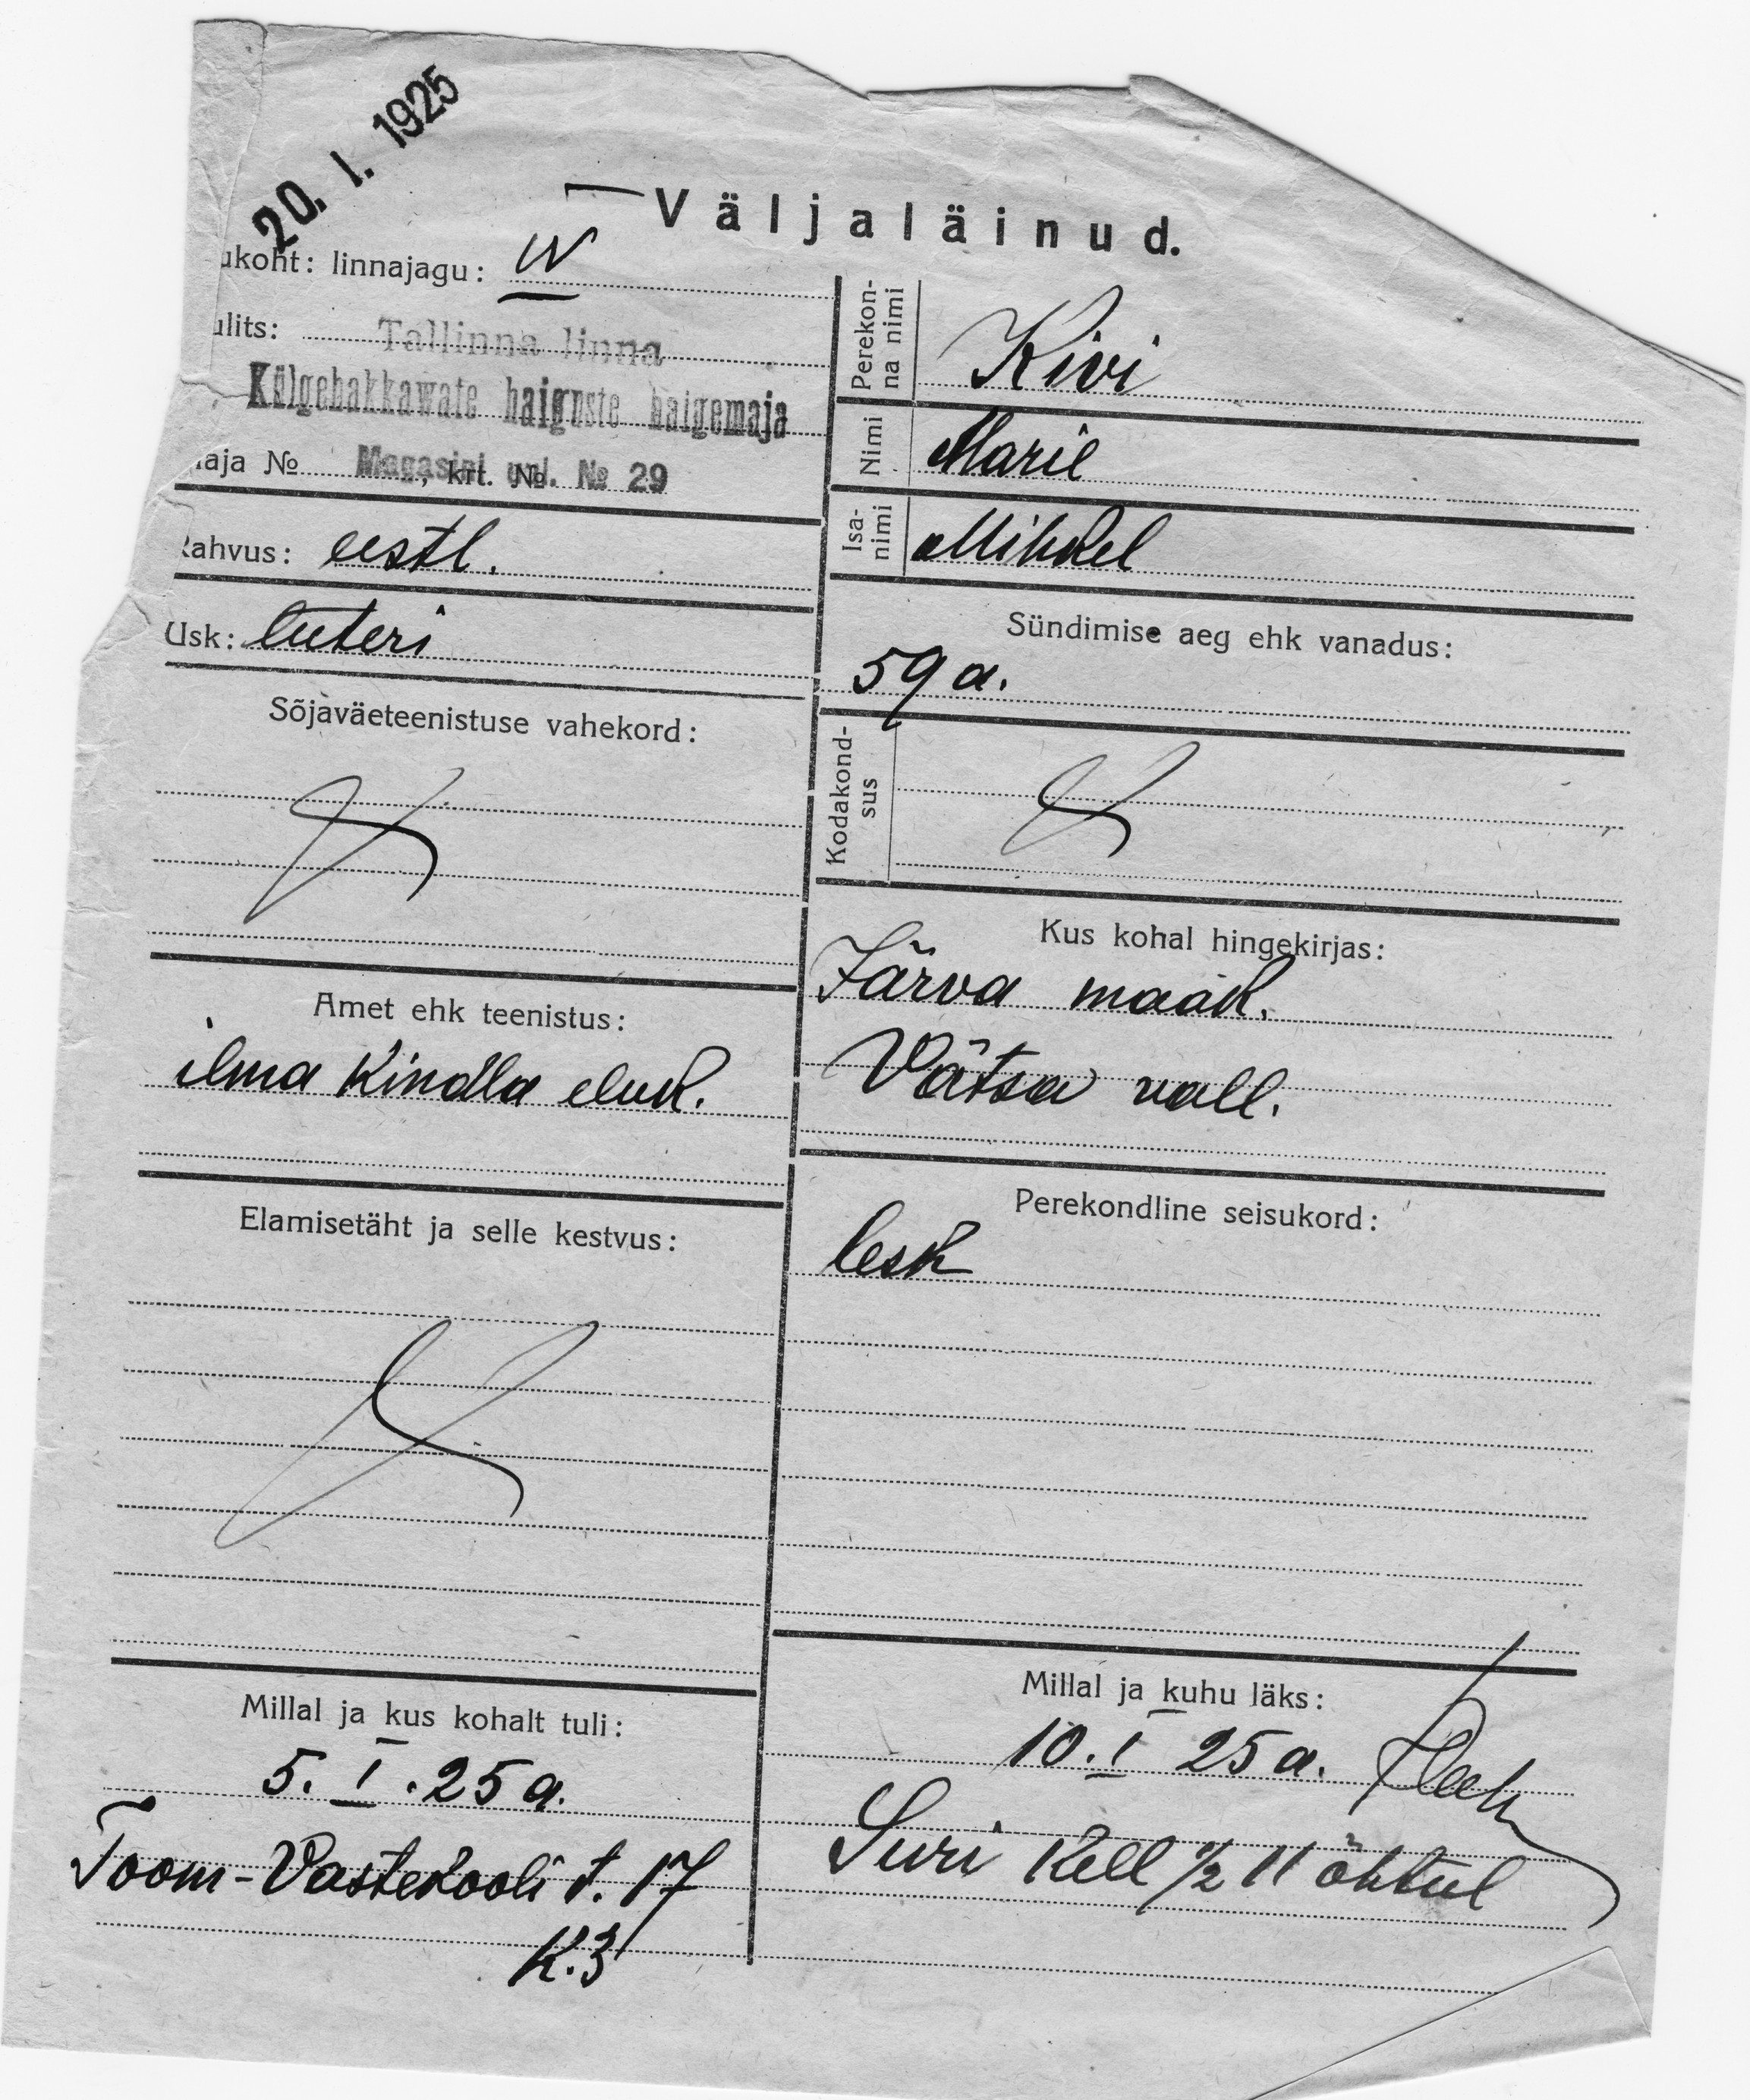 20. I. 1925
Väljaläinud.
ukoht: linnajagu: IV
ulits: Tallinna linna
Külgehakkawate haiguste haigemaja
aja № Magasini uul. № 29, krt. №
Rahvus: eestl.
Usk: luteri
Sõjaväeteenistuse vahekord:
Amet ehk teenistus:
ilma kindla eluk.
Elamisetäht ja selle kestvus:
Millal ja kus kohalt tuli:
5. I. 25 a.
Toom-Vastekooli t. 17
K. 3
Perekon-
na nimi
Kivi
Nimi
Marie
Isa-
nimi
Mihkel
Sündimise aeg ehk vanadus:
59 a.
Kodakond-
sus
Kus kohal hingekirjas:
Järva maak.
Vätsa vall.
Perekondline seisukord:
lesk
Millal ja kuhu läks:
10. I 25 a.
Suri kell 1/2 11 õhtul